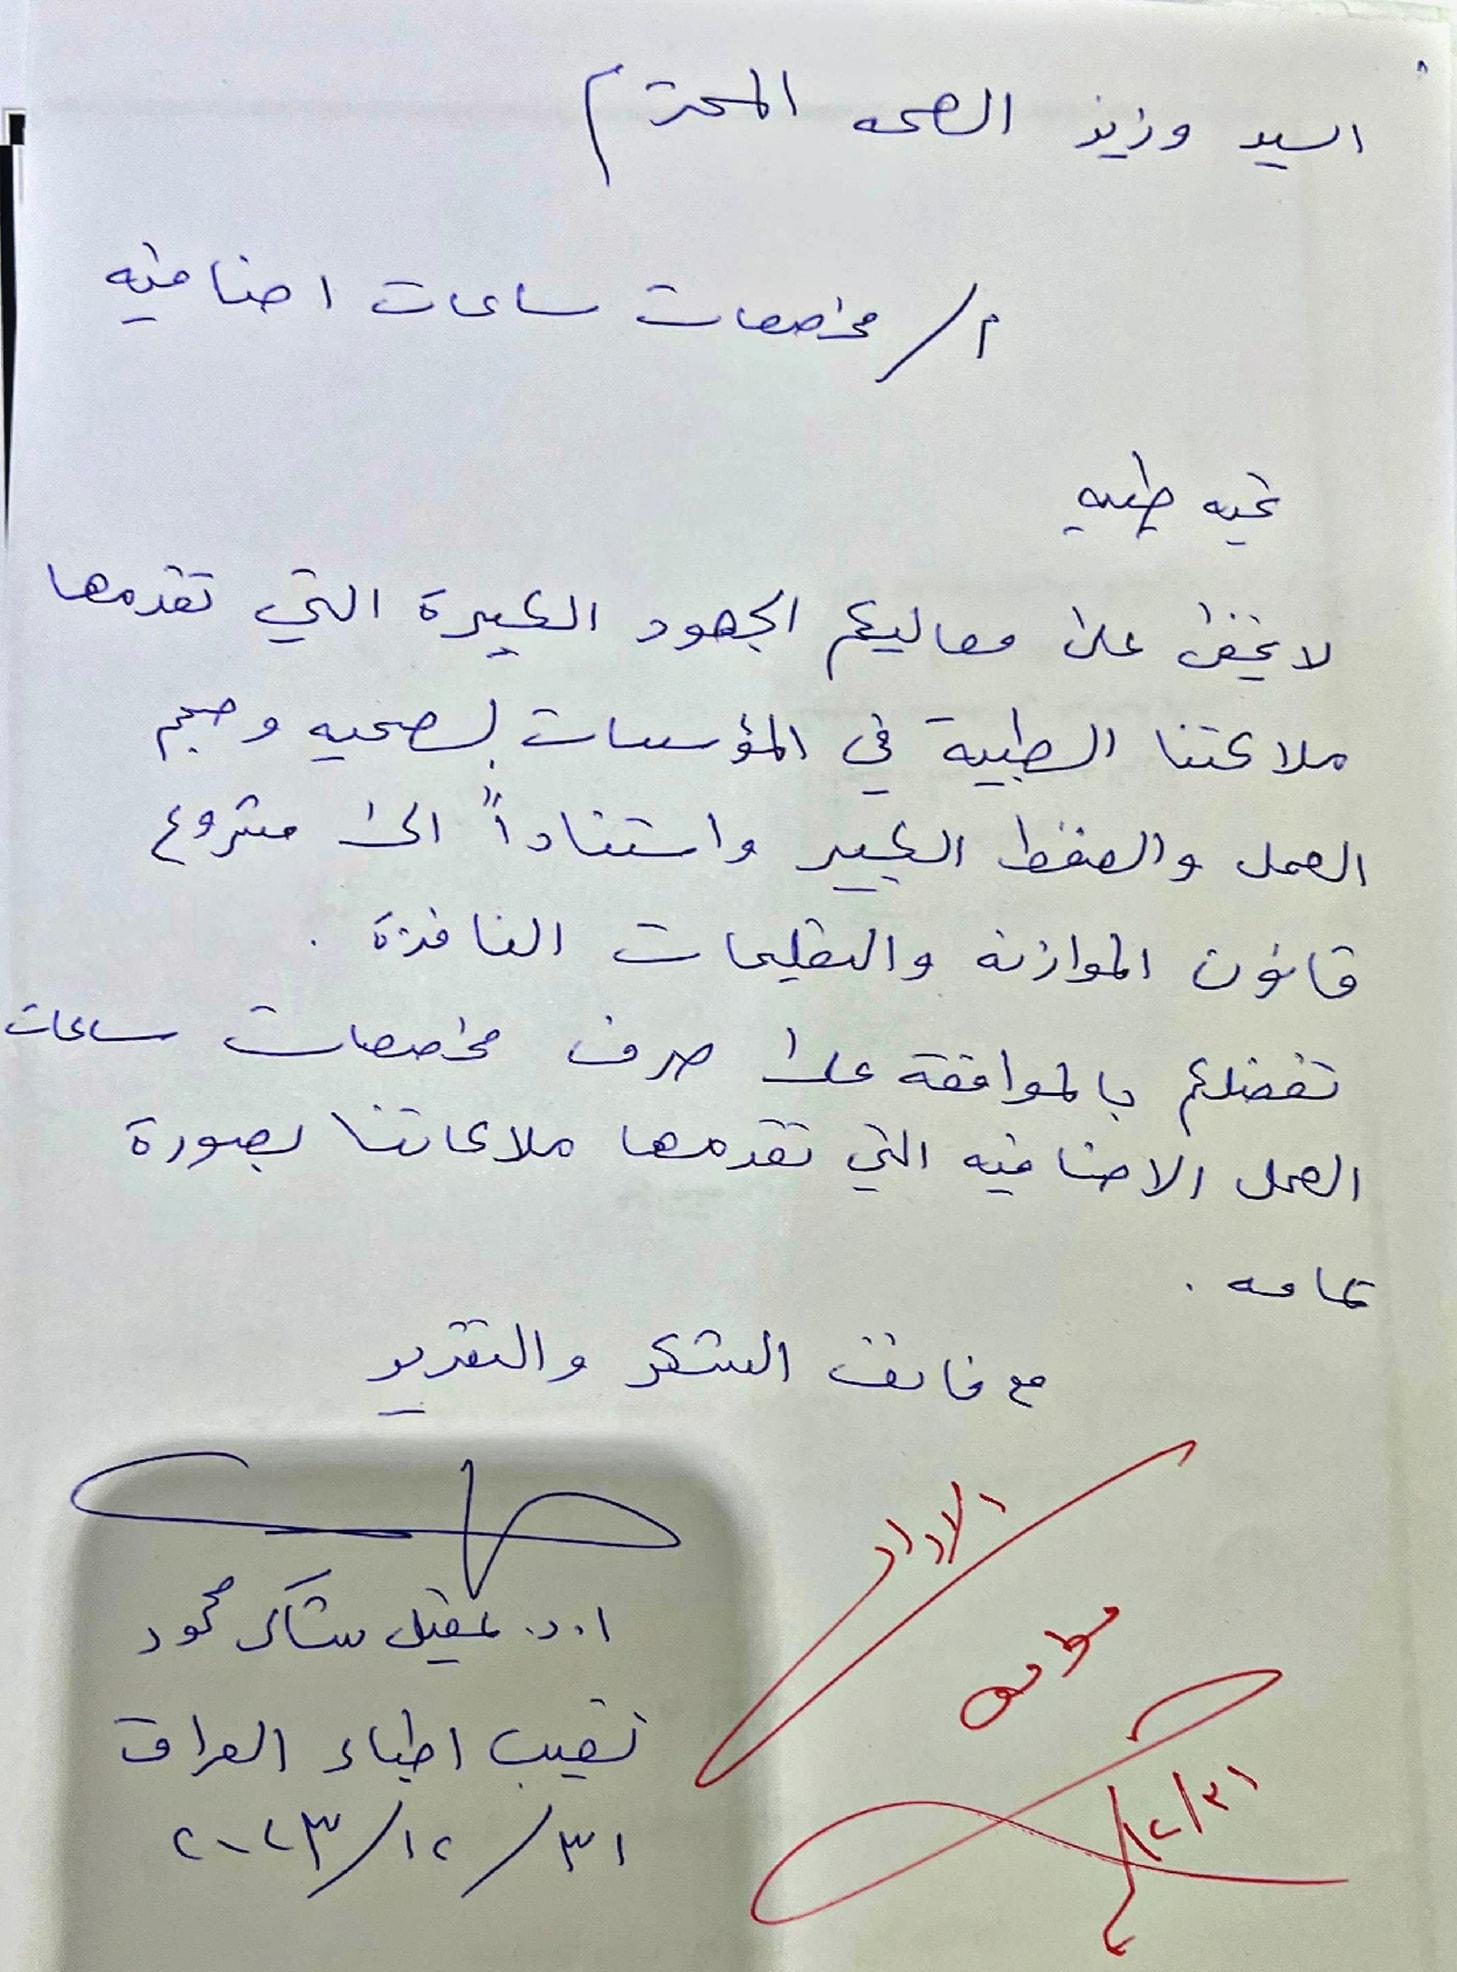 السيد وزير الصحه المحترم
م/ مخصصات ساعات اضافيه
تحيه طيبه
لا يخفى على معاليكم الجهود الكبيرة التي تقدمها
ملاكتنا الطبية في المؤسسات الصحيه وحجم
العمل والضغط الكبير واستناداً الى مشروع
قانون الموازنه والتعليمات النافذة .
تفضلكم بالموافقة على صرف مخصصات ساعات
العمل الاضافيه التي تقدمها ملاكاتنا بصورة
تمامه .
مع فائق الشكر والتقدير
ا.د. عقيل شاكر محمود
نقيب اطباء العراق
٣١/١٢/٢٠٢٣
١٢/٣١